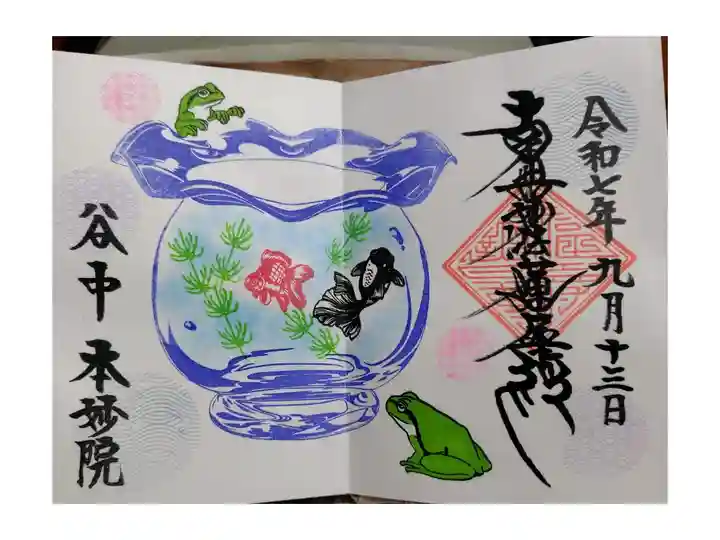 令和七年九月十三日
南無妙法蓮華経
谷中本妙院